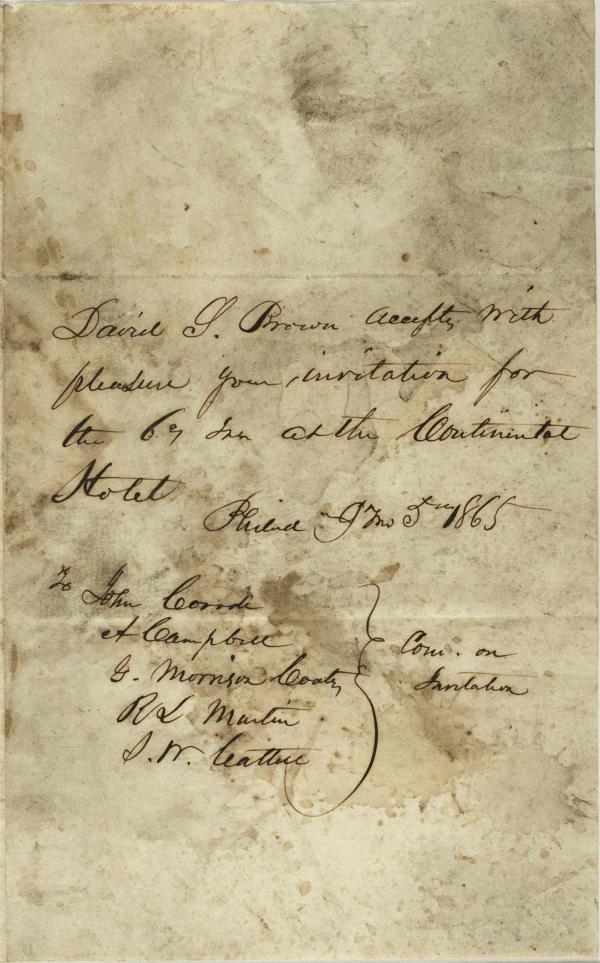 David S. Brown accepts with
pleasure your invitation for
the 6th at the Continental
Hotel
Philad 5 1865
To John
A Campbell
G. Morrison Coates
R L Martin
S. W.
Com. on
Invitation